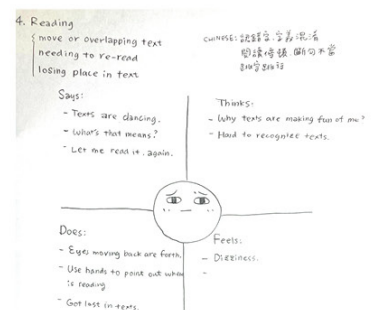 4. Reading
move or overlapping text
needing to re-read
losing place in text
CHINESE: 認錯字、字義混淆
閱讀慢、斷句不當
跳字跳行
Says:
- Texts are dancing.
- What's that means?
- Let me read it again.
Thinks:
- Why texts are making fun of me?
- Hard to recognize texts.
Does:
- Eyes moving back are forth.
- Use hands to point out when
is reading
- Got lost in texts.
Feels:
- Dizziness.
-